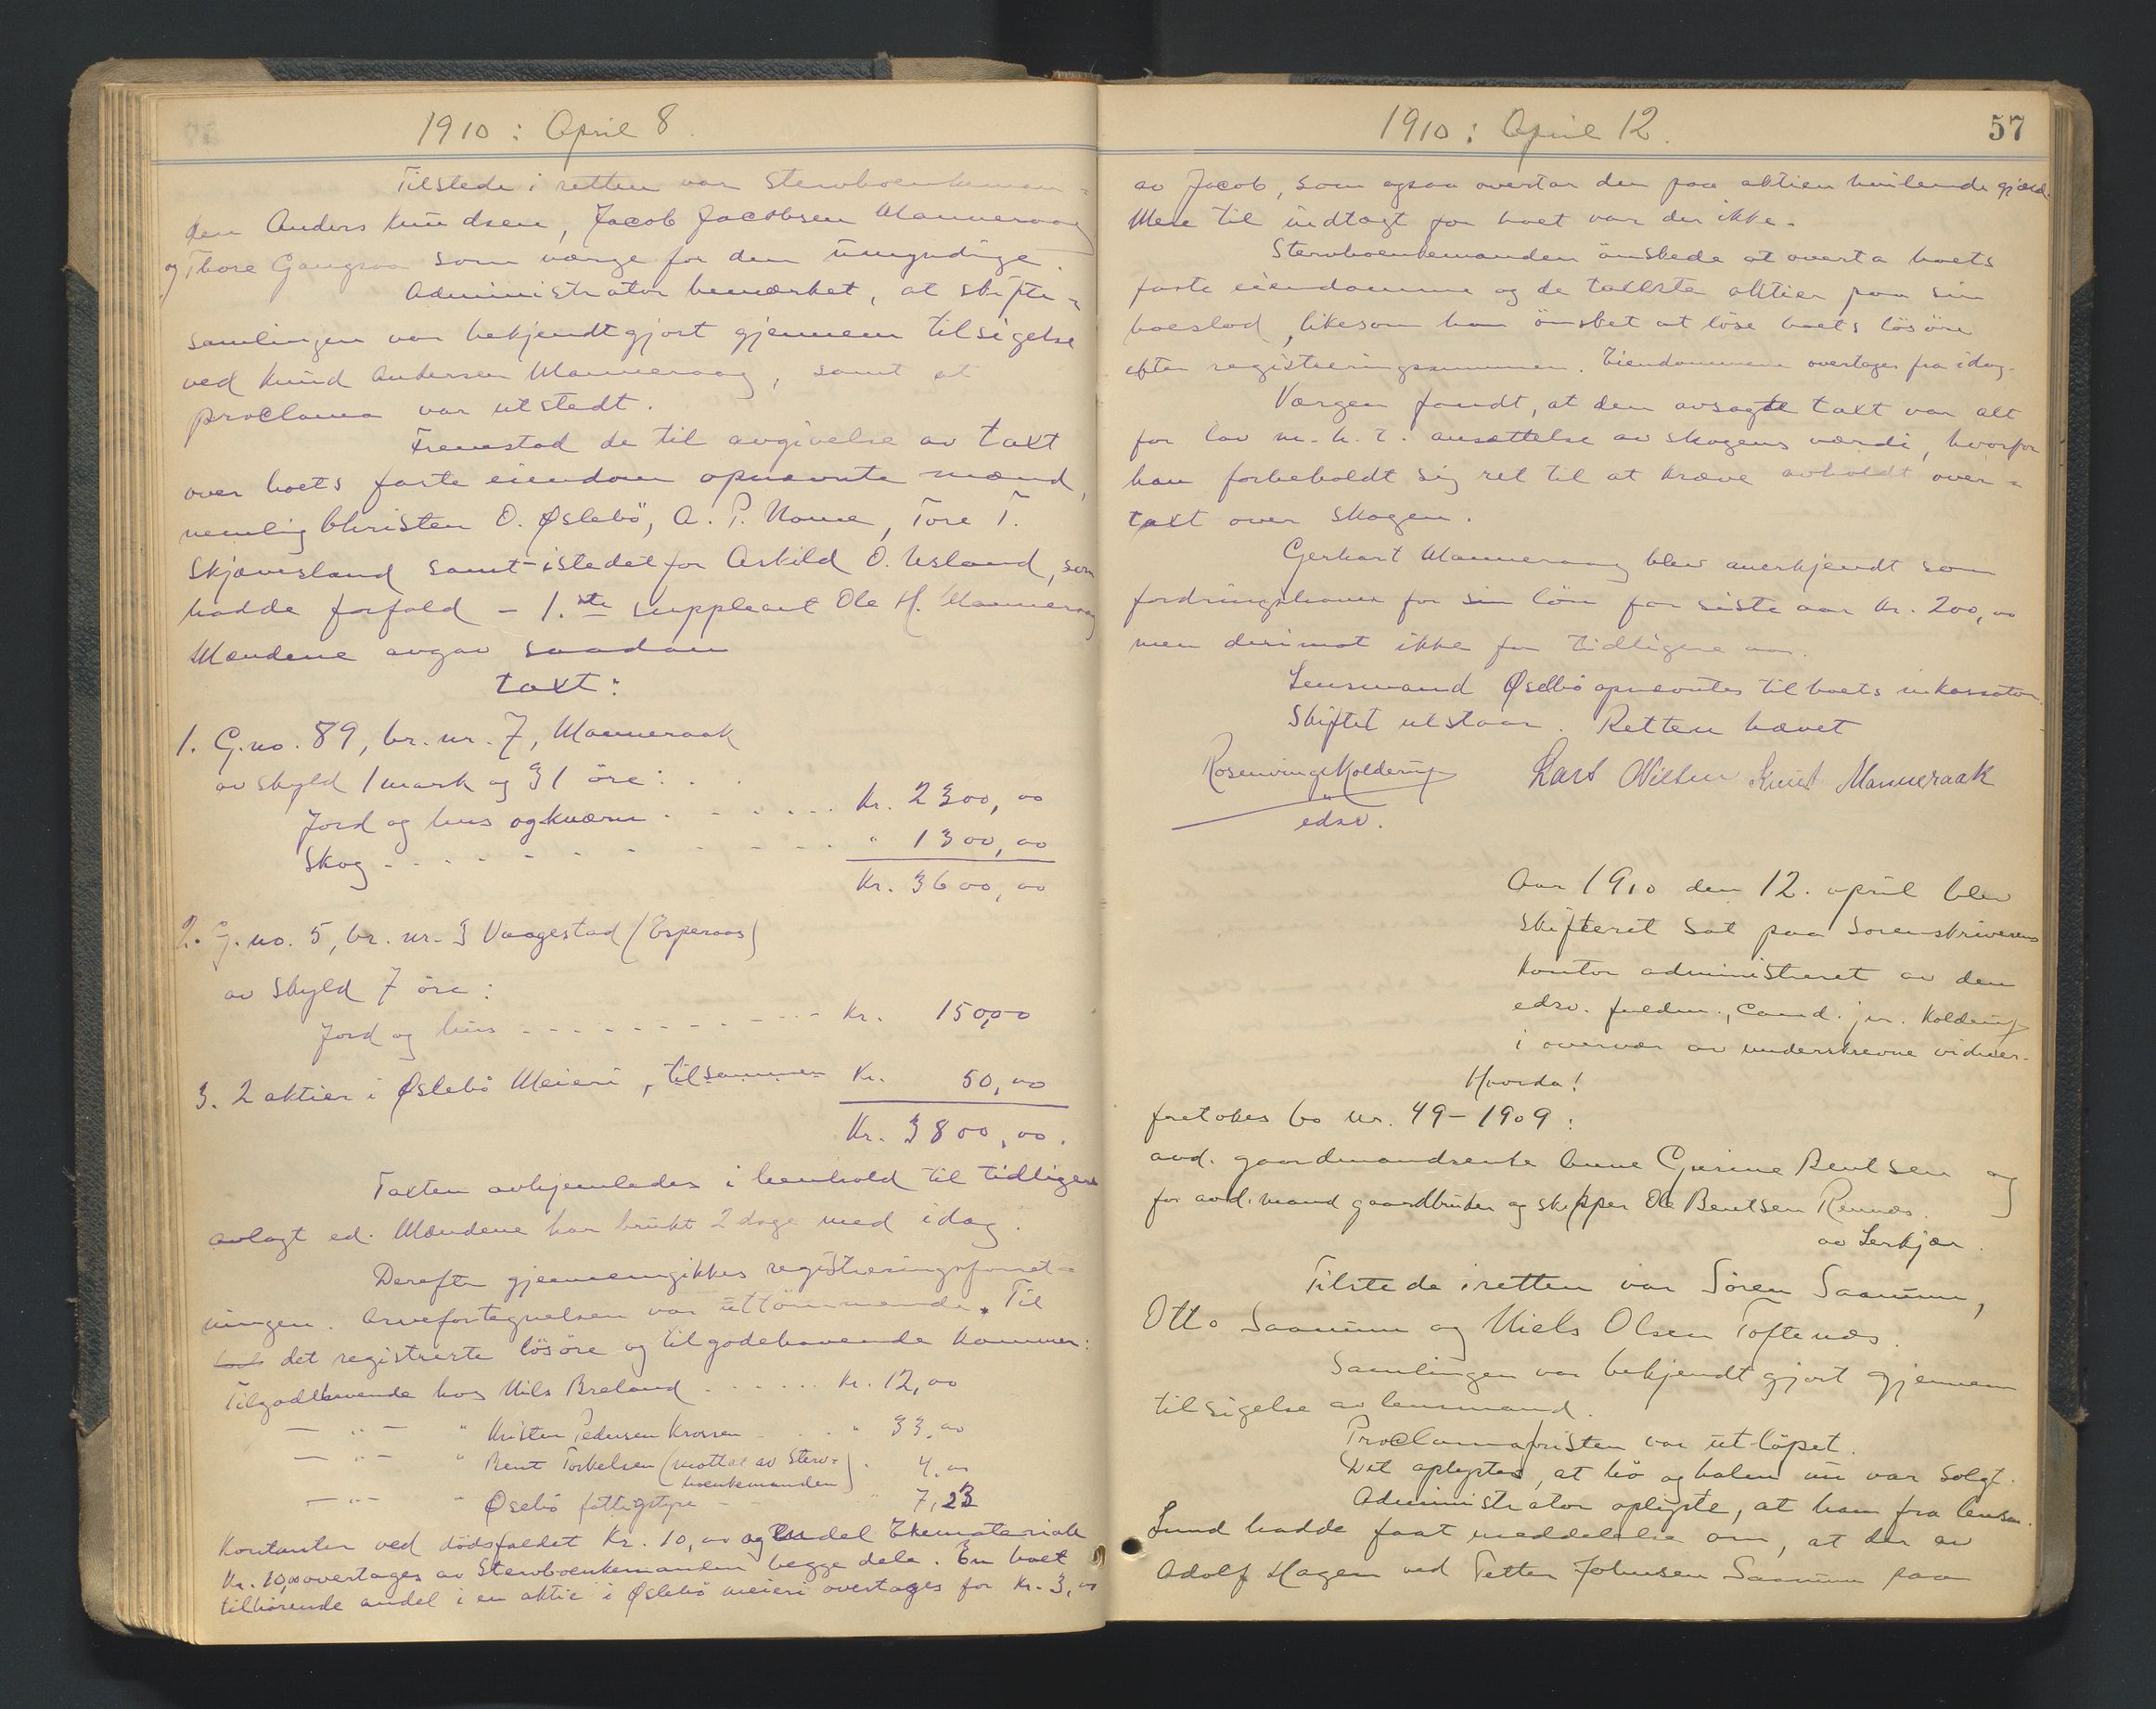 1910 : April 8.
Tilstede i retten var stervboenkeman=
den Anders Knudsen, Jacob Jacobsen Manneraag
og Thore Gangsaa som værge for den umyndige.
Administrator bemærket, at skifte=
samlingen var bekjendtgjort gjennem tilsigelse
ved Knud Andersen Manneraag, samt at
proclama var utstedt.
Fremstod de til avgivelse av taxt
over boets faste eiendom opnævnte mænd,
nemlig Christen O. Øslebö, A. P. Nome, Tore T.
Skjævesland samt - istedetfor Askild O. Usland, som
hadde forfald - 1.ste suppleant Ole H. Manneraag
Mændene avgav saadan
taxt:
1. G.no. 89, br. nr. 7, Manneraak
av skyld 1 mark og 31 öre:
Jord og hus og kværn . . . . . . Kr. 2300,00
Skog - - - - - - - - - " 1300,00
Kr. 3600,00
2. G. no. 5, br. nr. 3 Vaagestad (Esperaas)
av skyld 7 öre:
Jord og hus - - - - - - - - - - Kr. 150,00
3. 2 aktier i Øslebö Meieri, tilsammen Kr. 50,00
Kr. 3800,00.
Taxten avhjemledes i henhold til tidligere
avlagt ed. Mændene har brukt 2 dage med idag.
Derefter gjennemgikkes registreringsforret=
ningen. Arvefortegnelsen var uttömmende. Til
det registrerte lösöre og tilgodehavende kommer:
Tilgodehavende hos Nils Breland . . . . . . Kr. 12,00
— " — " Kristen Pedersen Krossen - . . " 33,00
— " — " Bent Torkelsen (mottat av Sterv= boenkemanden) . 4,00
— " — " Øslebö fattigstyre - - " 7,23
Kontanter ved dödsfaldet Kr. 10,00 og endel Ekematerialer
Kr. 10,00 overtages av Stervboenkemanden begge dele. En boet
tilhörende andel i en aktie i Øslebö meieri overtages for Kr. 3,00
1910 : April 12.
57
av Jacob, som ogsaa overtar den paa aktien hvilende gjæld.
Mere til indtægt for boet var der ikke.
Stervboenkemanden önskede at overta boets
faste eiendomme og de taxerte aktier paa sin
boeslod, likesom han önsket at löse boets lösöre
efter registreringssummen. Eiendommene overtages fra idag.
Værgen fandt, at den avsagte taxt var alt
for lav m. h. t. ansættelse av skogens værdi, hvorfor
han forbeholdt sig ret til at kræve avholdt over=
taxt over skogen.
Gerhart Manneraag blev anerkjendt som
fordringshaver for sin lön for siste aar Kr. 200,00
men derimot ikke for tidligere aar.
Lensmand Øslebö opnævntes til boets inkassator.
Skiftet utstaar. Retten hævet
Rosenvinge Kolderup Lars Nilsen Knut Manneraak
edsv.
Aar 1910 den 12. april blev
Skifteret sat paa Sorenskriverens
kontor administreret av den
edsv. fuldm., cand. jur. Kolderup
i overvær av underskrevne vidner.
Hvorda!
foretokes bo nr. 49 - 1909 :
avd. gaardmandsenke Gurine Bentsen og
for avd. mand gaardbruker og skipper Ole Bentsen Rennæs.
av Lerkjær.
Tilstede i retten var Sören Saanum,
Otto Saanum og Niels Olsen Toftenæs.
Samlingen var bekjendtgjort gjennem
tilsigelse av lensmand.
Proclamafristen var utlöpet.
Det oplystes, at hö og halm nu var solgt.
Administrator oplyste, at han fra lensm.
Lund hadde faat meddelelse om, at der av
Adolf Hagen ved Petter Johnsen Saanum paa